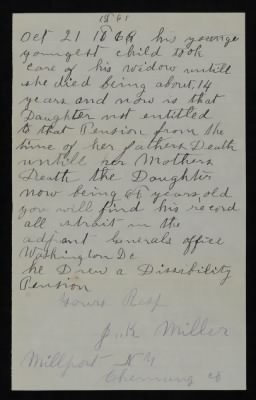 1868
Oct 21 1868 his younge
youngest child took
care of his widow untill
she died being about 14
years and now is that
Daughter not entitled
to that Pension from the
time of her fathers Death
untill her Mothers
Death the Daughter
now being 66 years old
you will find his record
all strait in the
adjuant Generals office
Washington Dc
he Drew a Dissability
Pension
Yours Resp
J. K. Miller
Millport N Y
Chemung co